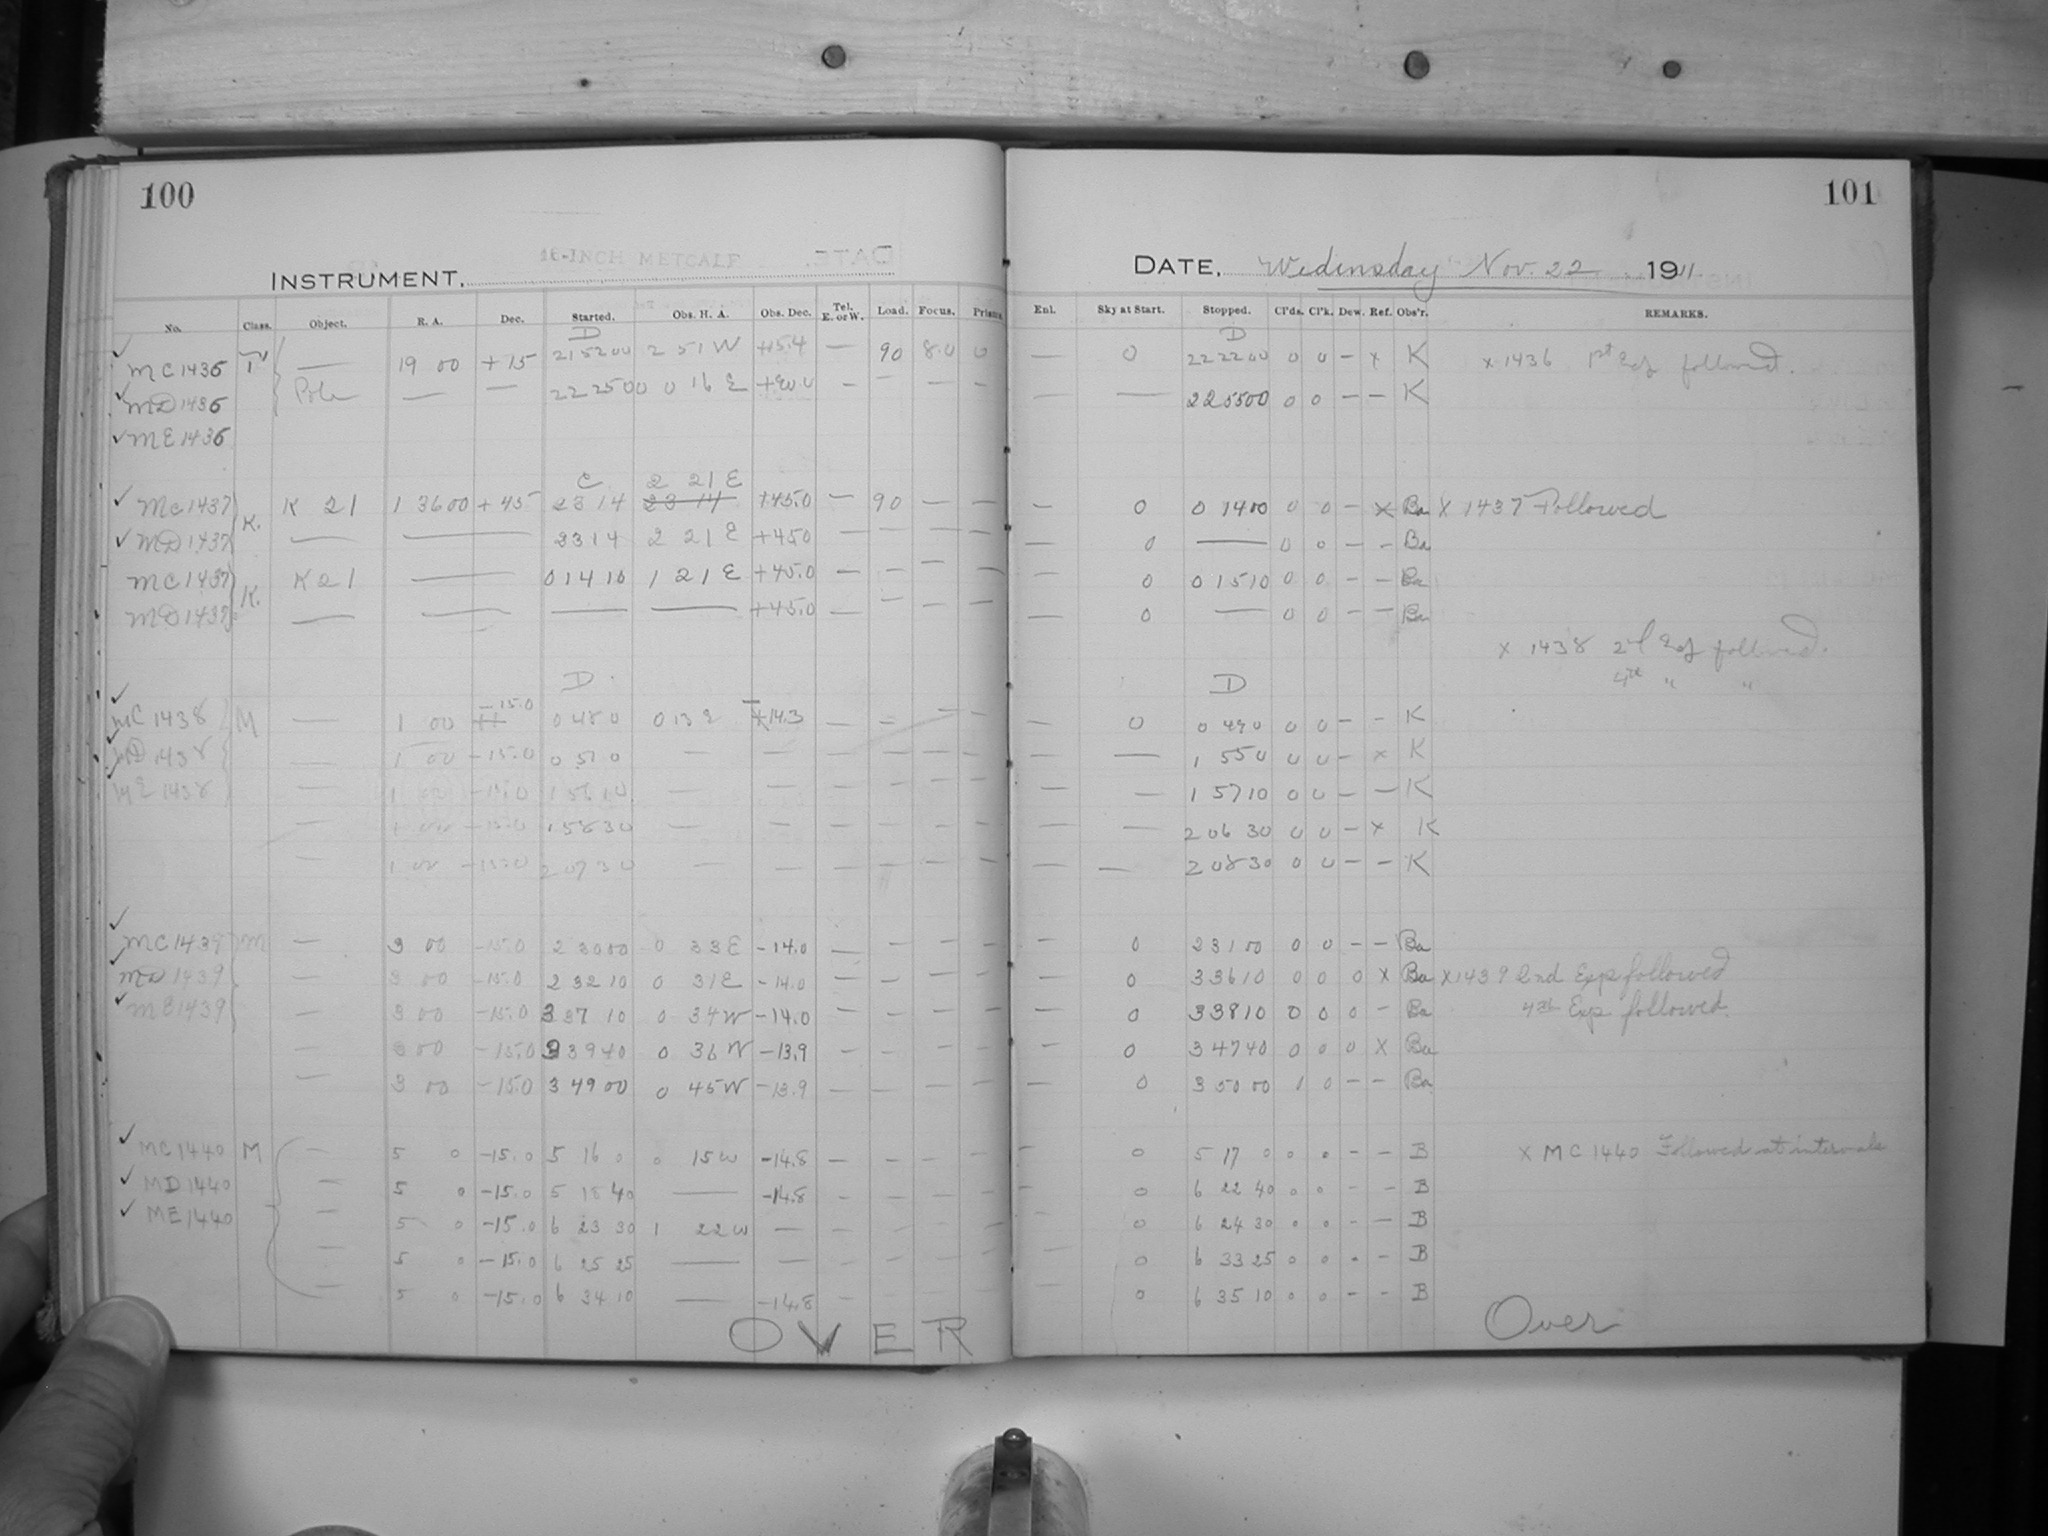 100
INSTRUMENT. 16-INCH METCALF
No. Class. Object. R. A. Dec. Started. Obs. H. A. Obs. Dec. Tel. E. or W. Load. Focus. Prisms
D
MC1436 19 00 +75 215200 2 51 W +15.4 — 90 8.0 0
MD1436 Pole — — 222500 0 16 E +90.0 — — — —
ME1436
C 2 21 E
MC1437 K. K 21 1 3600 +45 2314 23 14 +45.0 — 90 — —
MD1437 — — 2314 2 21 E +450 — — — —
MC1437 K. K21 — 01410 1 21 E +45.0 — — — —
MD1437 — — — — — +45.0 — — — —
D
-15.0
MC 1438 M — 1 00 0480 0 13 E 14.3 — — — —
MD 1438 — 1 00 -15.0 0 510 — — — — — —
ME 1438 — 1 00 -15.0 15610 — — — — — —
— 1 00 -15.0 15830 — — — — — —
— 1 00 -15.0 20730 — — — — — —
MC1439 M — 3 00 -15.0 2 3000 0 33E -14.0 — — — —
MD 1439 3 00 -15.0 2 32 10 0 31E -14.0 — — — —
ME1439 — 3 00 -15.0 337 10 0 34W -14.0 — — — —
— 3 00 -15.0 33940 0 36 W -13.9 — — — —
— 3 00 -15.0 3 4900 0 45W -13.9 — — — —
MC1440 M — 5 0 -15.0 5 16 0 0 15W -14.8 — — — —
MD1440 — 5 0 -15.0 5 18 40 — -14.8 — — — —
ME1440 — 5 0 -15.0 6 23 30 1 22W — — — — —
— 5 0 -15.0 6 25 25 — — — — — —
— 5 0 -15.0 6 34 10 — -14.8 —
OVER
101
DATE, Wedensday Nov. 22 1911.
Enl. Sky at Start. Stopped. Cl'ds. Cl'k. Dew. Ref. Obs'r. REMARKS.
D
— 0 222200 0 0 — x K x 1436 1st Exp followed.
— — 225500 0 0 — — K
— 0 0 1400 0 0 — x Ba x 1437 Followed
— 0 — 0 0 — — Ba
— 0 0 1510 0 0 — — Ba
— 0 — 0 0 — — Ba
x 1438 2d Exp followed.
4th " "
D
— 0 0 490 0 0 — — K
— — 1 550 0 0 — x K
— — 1 5710 0 0 — — K
— — 206 30 0 0 — x K
— — 20830 0 0 — — K
— 0 23100 0 0 — — Ba
— 0 33610 0 0 0 x Ba x1439 2nd Exp followed
— 0 33810 0 0 0 — Ba 4th Exp followed.
— 0 34740 0 0 0 x Ba
— 0 35000 1 0 — — Ba
— 0 5 17 0 0 0 — — B x MC1440 Followed at intervals
— 0 6 22 40 0 0 — — B
— 0 6 24 30 0 0 — — B
— 0 6 33 25 0 0 — — B
— 0 6 35 10 0 0 — — B
Over